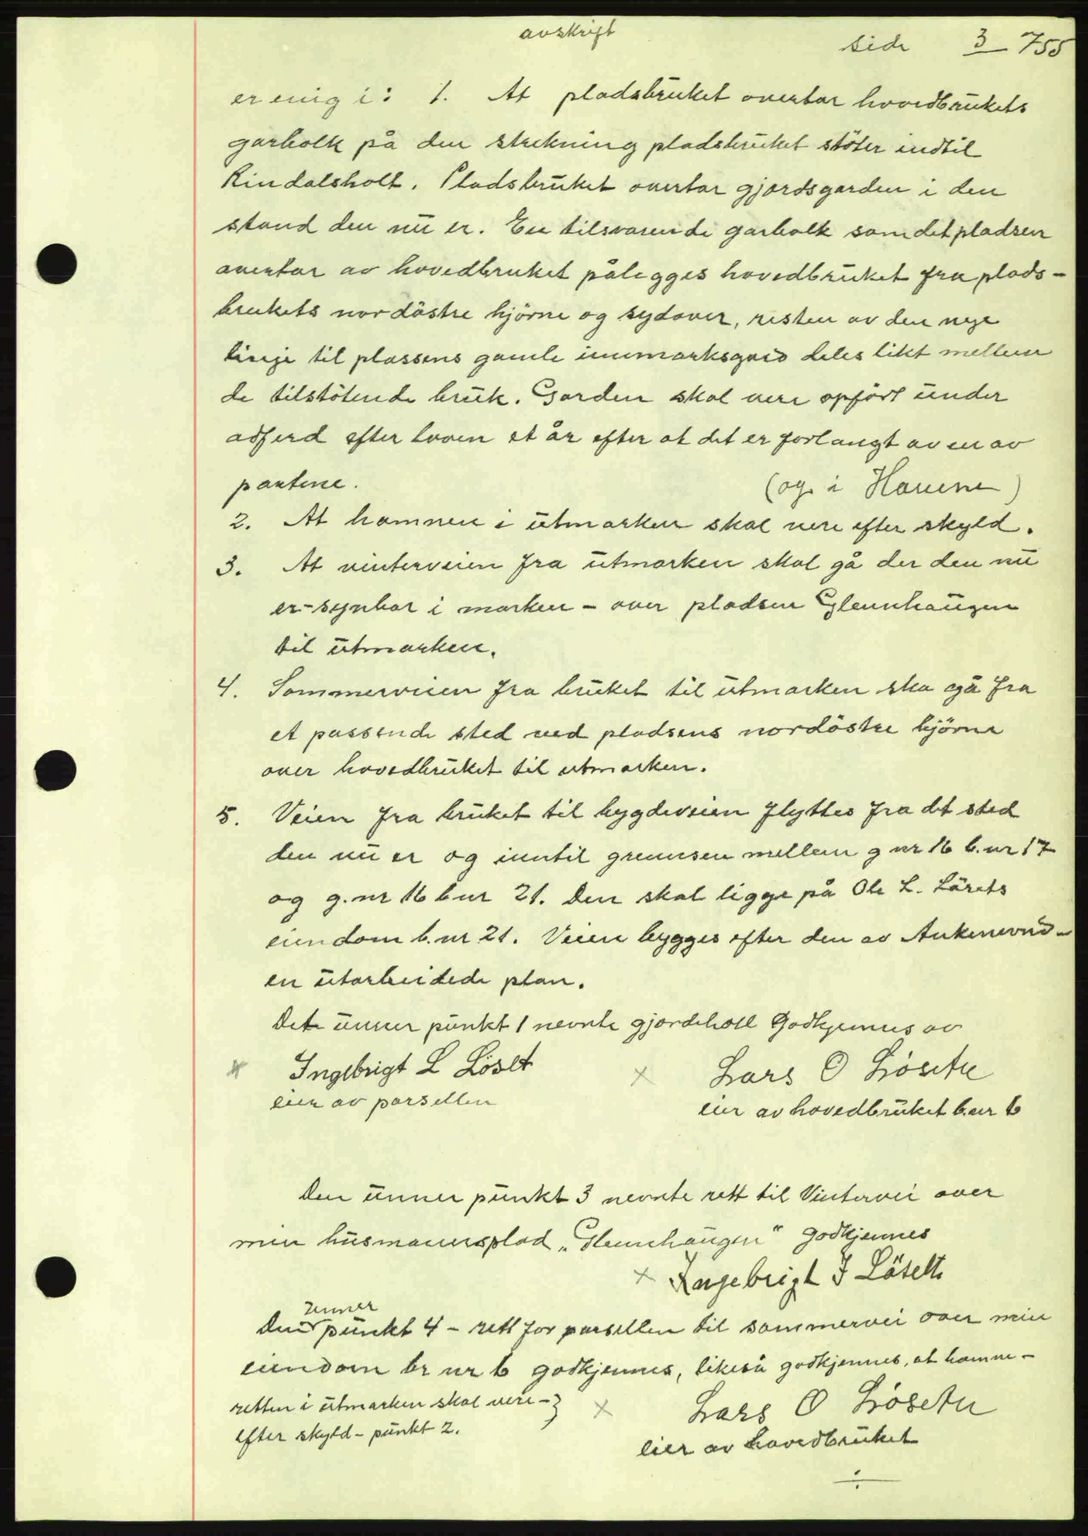 avskrift
side 3 755
er enig i: 1. At pladsbruket overtar hovedbrukets
garholk på den strekning pladsbruket støter indtil
Rindalsholt. Pladsbruket overtar gjærdsgarden i den
stand den nu er. En tilsvarende garholk som det pladsen
overtar av hovedbruket pålegges hovedbruket fra plads-
brukets nordöstre hjörne og sydover, resten av den nye
linje til plassens gamle innmarksgard deles likt mellem
de tilstötende bruk. Garden skal vere opfört under
adferd efter loven et år efter at det er forlangt av en av
partene. (og i Havnen)
2. At hamnen i utmarken skal vere efter skyld.
3. At vinterveien fra utmarken skal gå der den nu
er-synbar i marken - over pladsen Glennhaugen
til utmarken.
4. Sommerveien fra bruket til utmarken ska gå fra
et passende sted ved pladsens nordöstre hjörne
over hovedbruket til utmarken.
5. Veien fra bruket til bygdeveien flyttes fra det sted
den nu er og inntil grennsen mellem g nr 16 b.nr 17
og g.nr 16 b nr 21. Den skal ligge på Ole L. Lösets
eiendom b.nr 21. Veien bygges efter den av
en utarbeidede plan.
Det unner punkt 1 nevnte gjordehold Godkjennes av
x Ingebrigt L Löset x Lars O Løseth
eier av parsellen
eier av hovedbruket b.nr 6
Den unner punkt 3 nevnte rett til Vintervei over
min husmannsplad „Glennhaugen" godkjennes
x Ingebrigt J Löseth
unner
Den punkt 4 - rett for parsellen til sommervei over min
eiendom br nr 6 godkjennes, likeså godkjennes, at hamne-
retten i utmarken skal vere - } x Lars O Løseth
efter skyld - punkt 2.
eier av hovedbruket